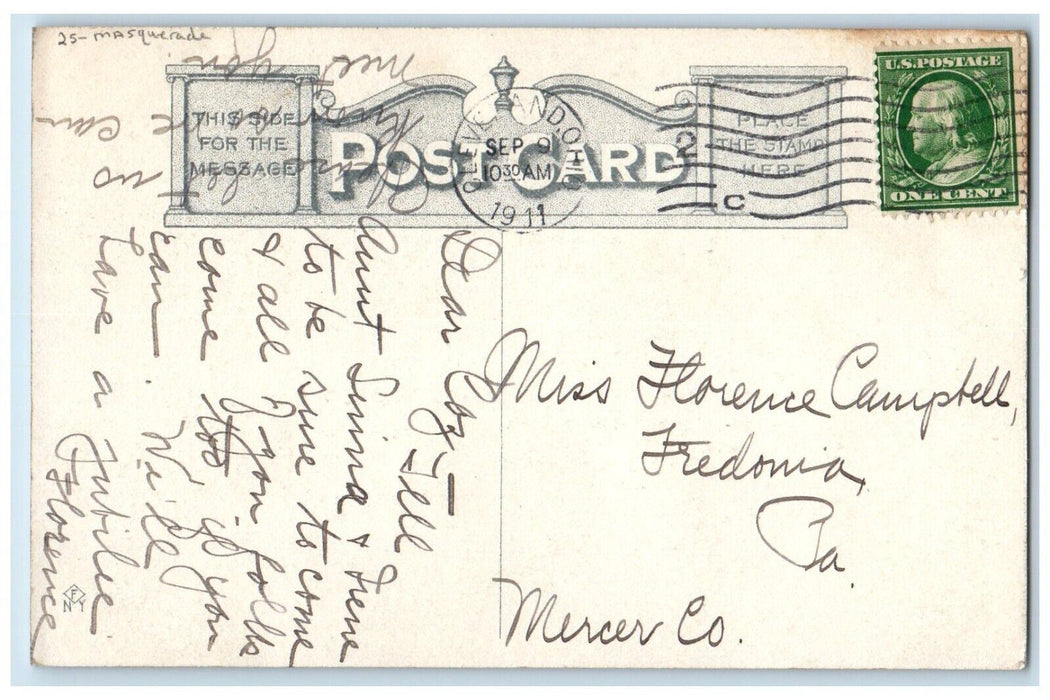 25- MASquerade
THIS SIDE
FOR THE
MESSAGE
POST CARD
PLACE
THE STAMP
HERE
CLEVELAND OHIO
SEP 9
10 30 AM
1911
2
C
U.S. POSTAGE
ONE CENT
Dear Coz- Tell
Aunt & Irene
to be sure to come
& all of you folks
come too if you
can. We'll
have a Jubilee
Florence
us
can
meet you
Miss Florence Campbell,
Fredonia,
Pa.
Mercer Co.
F
NY